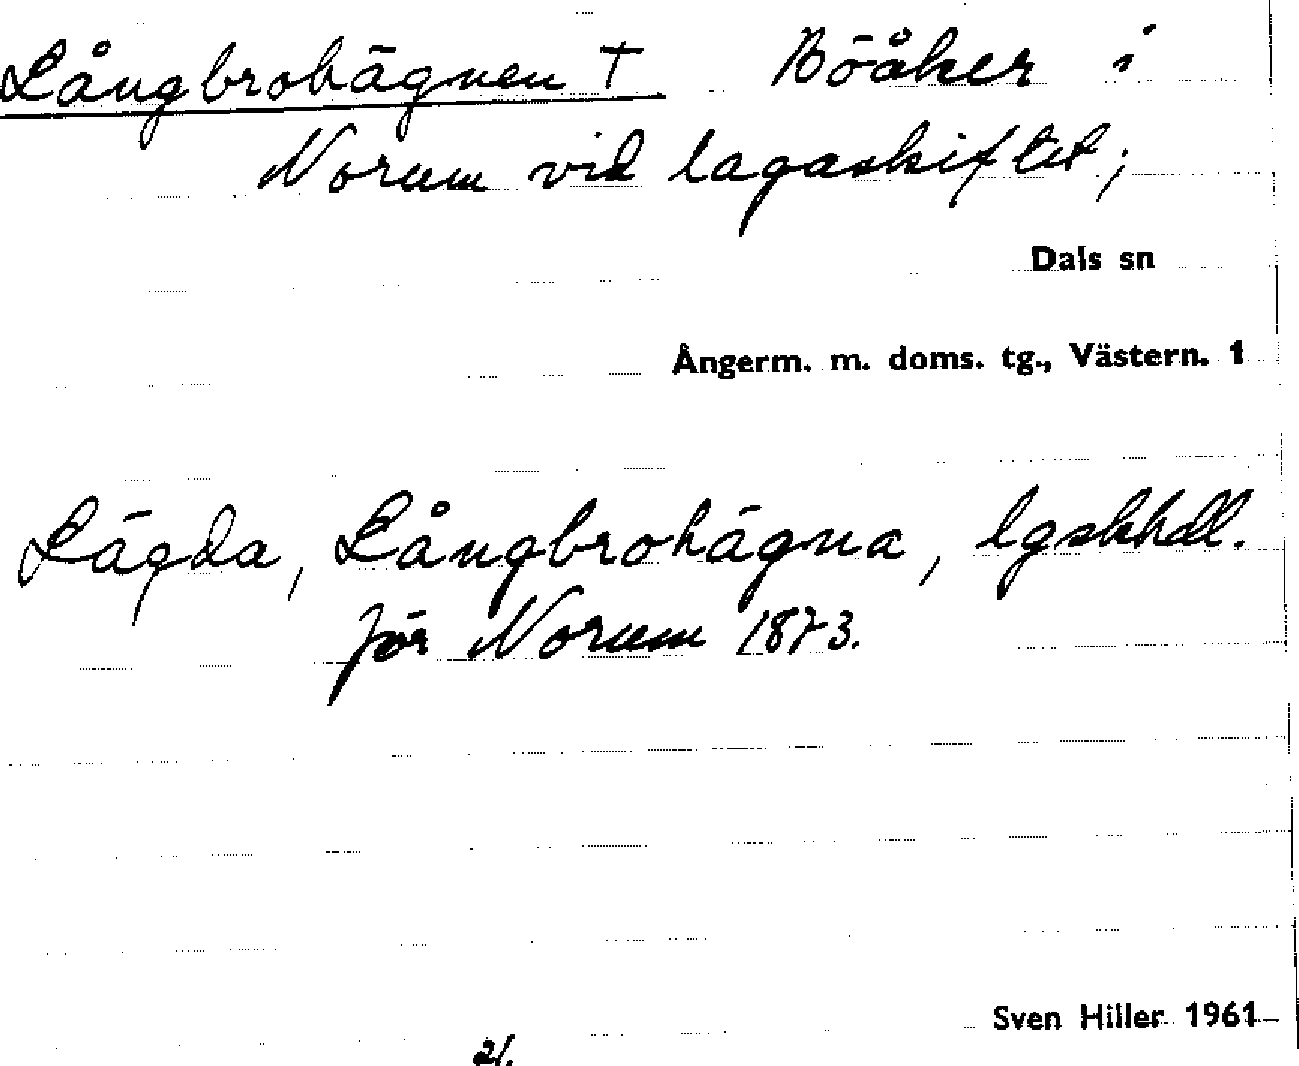 Långbrohägnen † Böåker i
Norum vid lagaskiftet;
Dals sn
Ångerm. m. doms. tg., Västern. 1
Lägda, Långbrohägna, lgskhdl.
för Norum 1873.
Sven Hiller 1961
21.